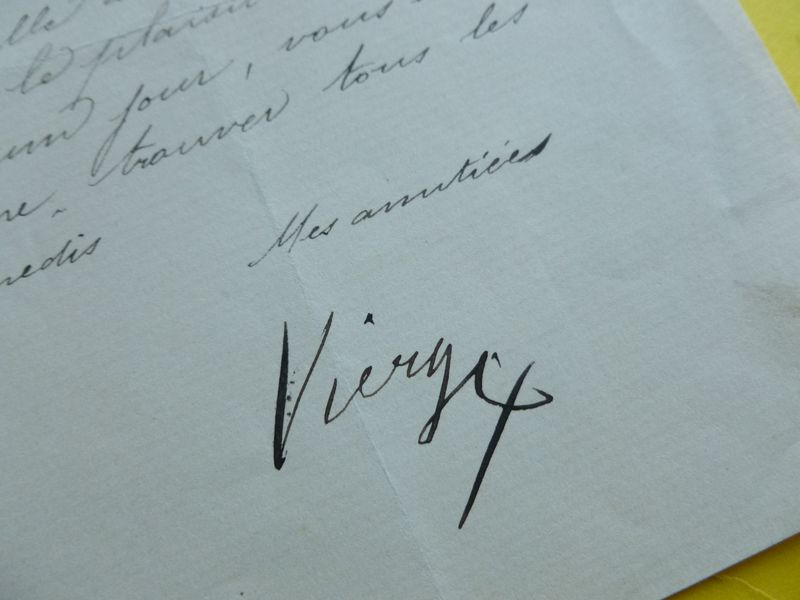 le plaisir
un jour, vous
trouver tous les
Mes amitiées
Vierge